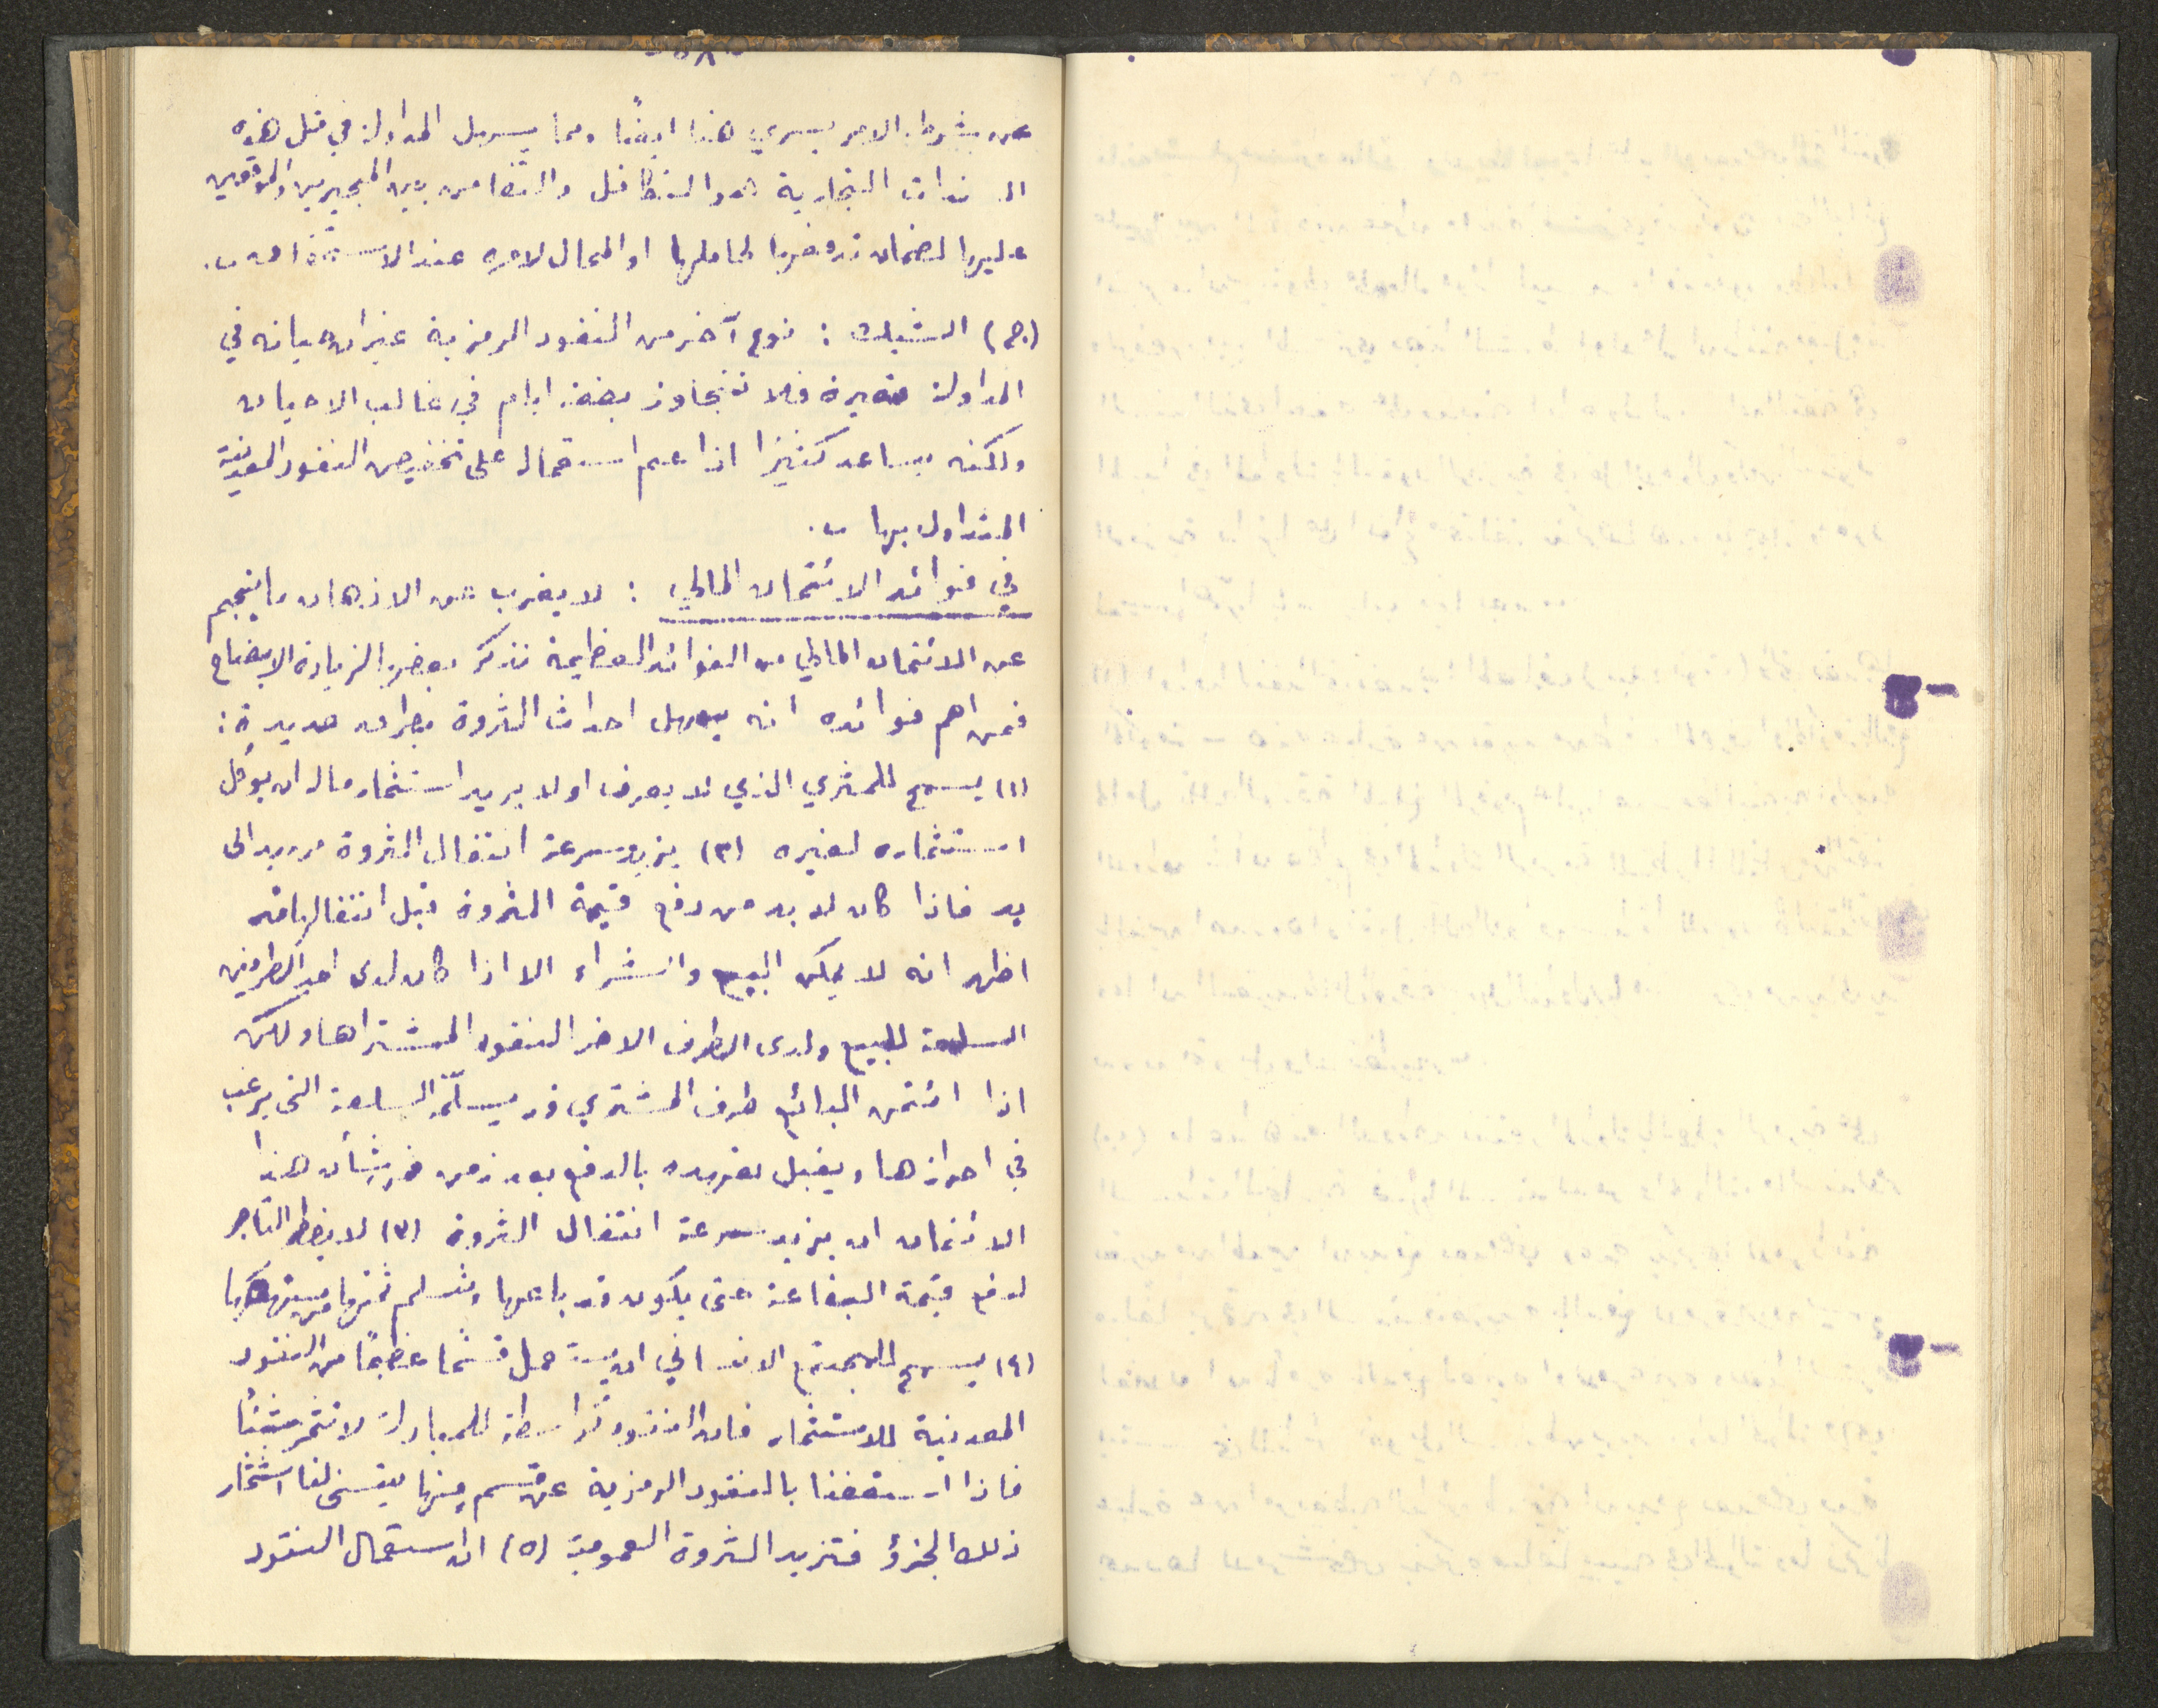 -٥٨-
عن شرط الامر يسري هنا ايضًا ومما يسهل المداولة في مثل هذه
السندات التجارية هو التكافل والتضامن بين المجيرين والموقعين
عليها لضمان دفعها لحاملها او المحال لامره عند الاستحقاق .
(ج) الشيك : نوع آخر من النقود الرمزية غير ان حياته في
المداولة قصيرة فلا تتجاوز بضعة ايام في غالب الاحيان
ولكنه يساعد كثيرًا اذا عم استعماله على تخفيض النقود المعدنية
المتداول بها .
في فوائد الائتمان المالي : لا يغرب عن الاذهان ما ينجم
عن الائتمان المالي من الفوائد العظيمة نذكر بعضها لزيادة الايضاح
فمن اهم فوائده انه يسهل احداث الثروة بطرق عديدة :
(١) يسمح للمثري الذي لا يعرف او لا يريد استثمار ماله ان يوكل
استثماره لغيره (٢) يزيد سرعة انتقال الثروة من يد الى
يد فاذا كان لا بد من دفع قيمة الثروة قبل انتقالها
اظهر انه لا يمكن البيع والشراء الا اذا كان لدى احد الطرفين
السلعة للبيع ولدى الطرف الاخر النقود لمشتراها ولكن
اذا ائتمن البائع طرف المشتري قد يسلّمه السلعة التي يرغب
في احرازها ويقبل تعهده بالدفع بعد زمن فمن شأن هذا
الائتمان ان يزيد سرعة انتقال الثروة (٣) لا يضطر التاجر
لدفع قيمة البضاعة حتى يكون قد باعها وتسلم ثمنها من مستهلكها
(٤) يسمح للمجتمع الانساني ان يستعمل قسمًا عظيمًا من النقود
المعدنية للاستثمار فان النقود كواسطة للمبادلة لا تثمر شيئًا
فاذا استعضنا بالنقود الرمزية عن قسم منها يتسنى لنا استثمار
ذلك الجزؤ فتزيد الثروة العمومية (٥) ان استعمال النقود